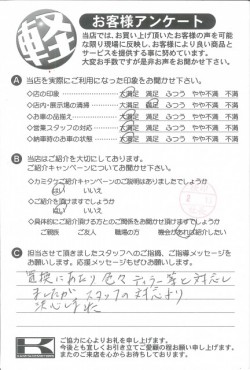 軽
お客様アンケート
当店では、お買い上げ頂いたお客様の声を可能
な限り現場に反映し、お客様により良い商品と
サービスを提供する事に努めています。
大変お手数ですが是非お声をお聞かせ下さい。
A 当店を実際にご利用になった印象をお聞かせ下さい。
◇店の印象 大満足 満足 ふつう やや不満 不満
◇店内・展示場の清掃 大満足 満足 ふつう やや不満 不満
◇お車の品揃え 大満足 満足 ふつう やや不満 不満
◇営業スタッフの対応 大満足 満足 ふつう やや不満 不満
◇納車時のお車の状態 大満足 満足 ふつう やや不満 不満
B 当店はご紹介を大切にしております。
ご紹介キャンペーンについてお聞かせ下さい。
◇カミタケご紹介キャンペーンのご説明はありましたでしょうか
はい いいえ
◇ご紹介を頂けますでしょうか
はい いいえ
◇具体的にご紹介頂ける方とのご関係をお聞かせ頂けますでしょうか
ご親戚 ご友人 職場の方 機会があれば紹介したい
C 担当させて頂きましたスタッフへのご指摘、ご指導メッセージを
お願いします。応援メッセージもぜひお願いします。
買換にあたり色々ディーラー等と対応し
ましたが スタッフの対応より
決めました
K
ご協力に心よりお礼を申し上げます。
今後とも楽しくてお引き立てご愛顧の程お願い申し上げます。
またのご来店を心からお待ちしております。